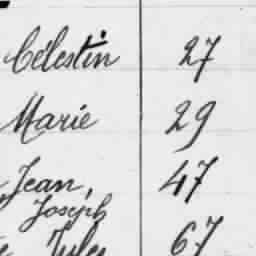 Célestin 27
Marie 29
Jean, 47
Joseph
Jules 67